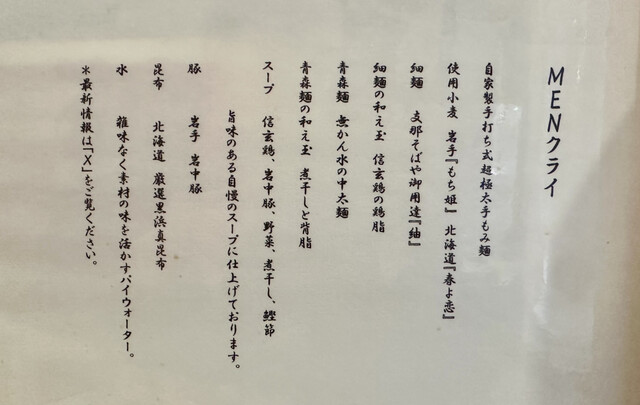 MENクライ
自家製手打ち式超極太手もみ麺
使用小麦 岩手『もち姫』 北海道『春よ恋』
細麺 支那そばや御用達『紬』
細麺の和え玉 信玄鶏の鶏脂
青森麺 無かん水の中太麺
青森麺の和え玉 煮干しと背脂
スープ 信玄鶏、岩中豚、野菜、煮干し、鰹節
旨味のある自慢のスープに仕上げております。
豚 岩手 岩中豚
昆布 北海道 厳選黒浜真昆布
水 雑味なく素材の味を活かすパイウォーター。
*最新情報は「X」をご覧ください。